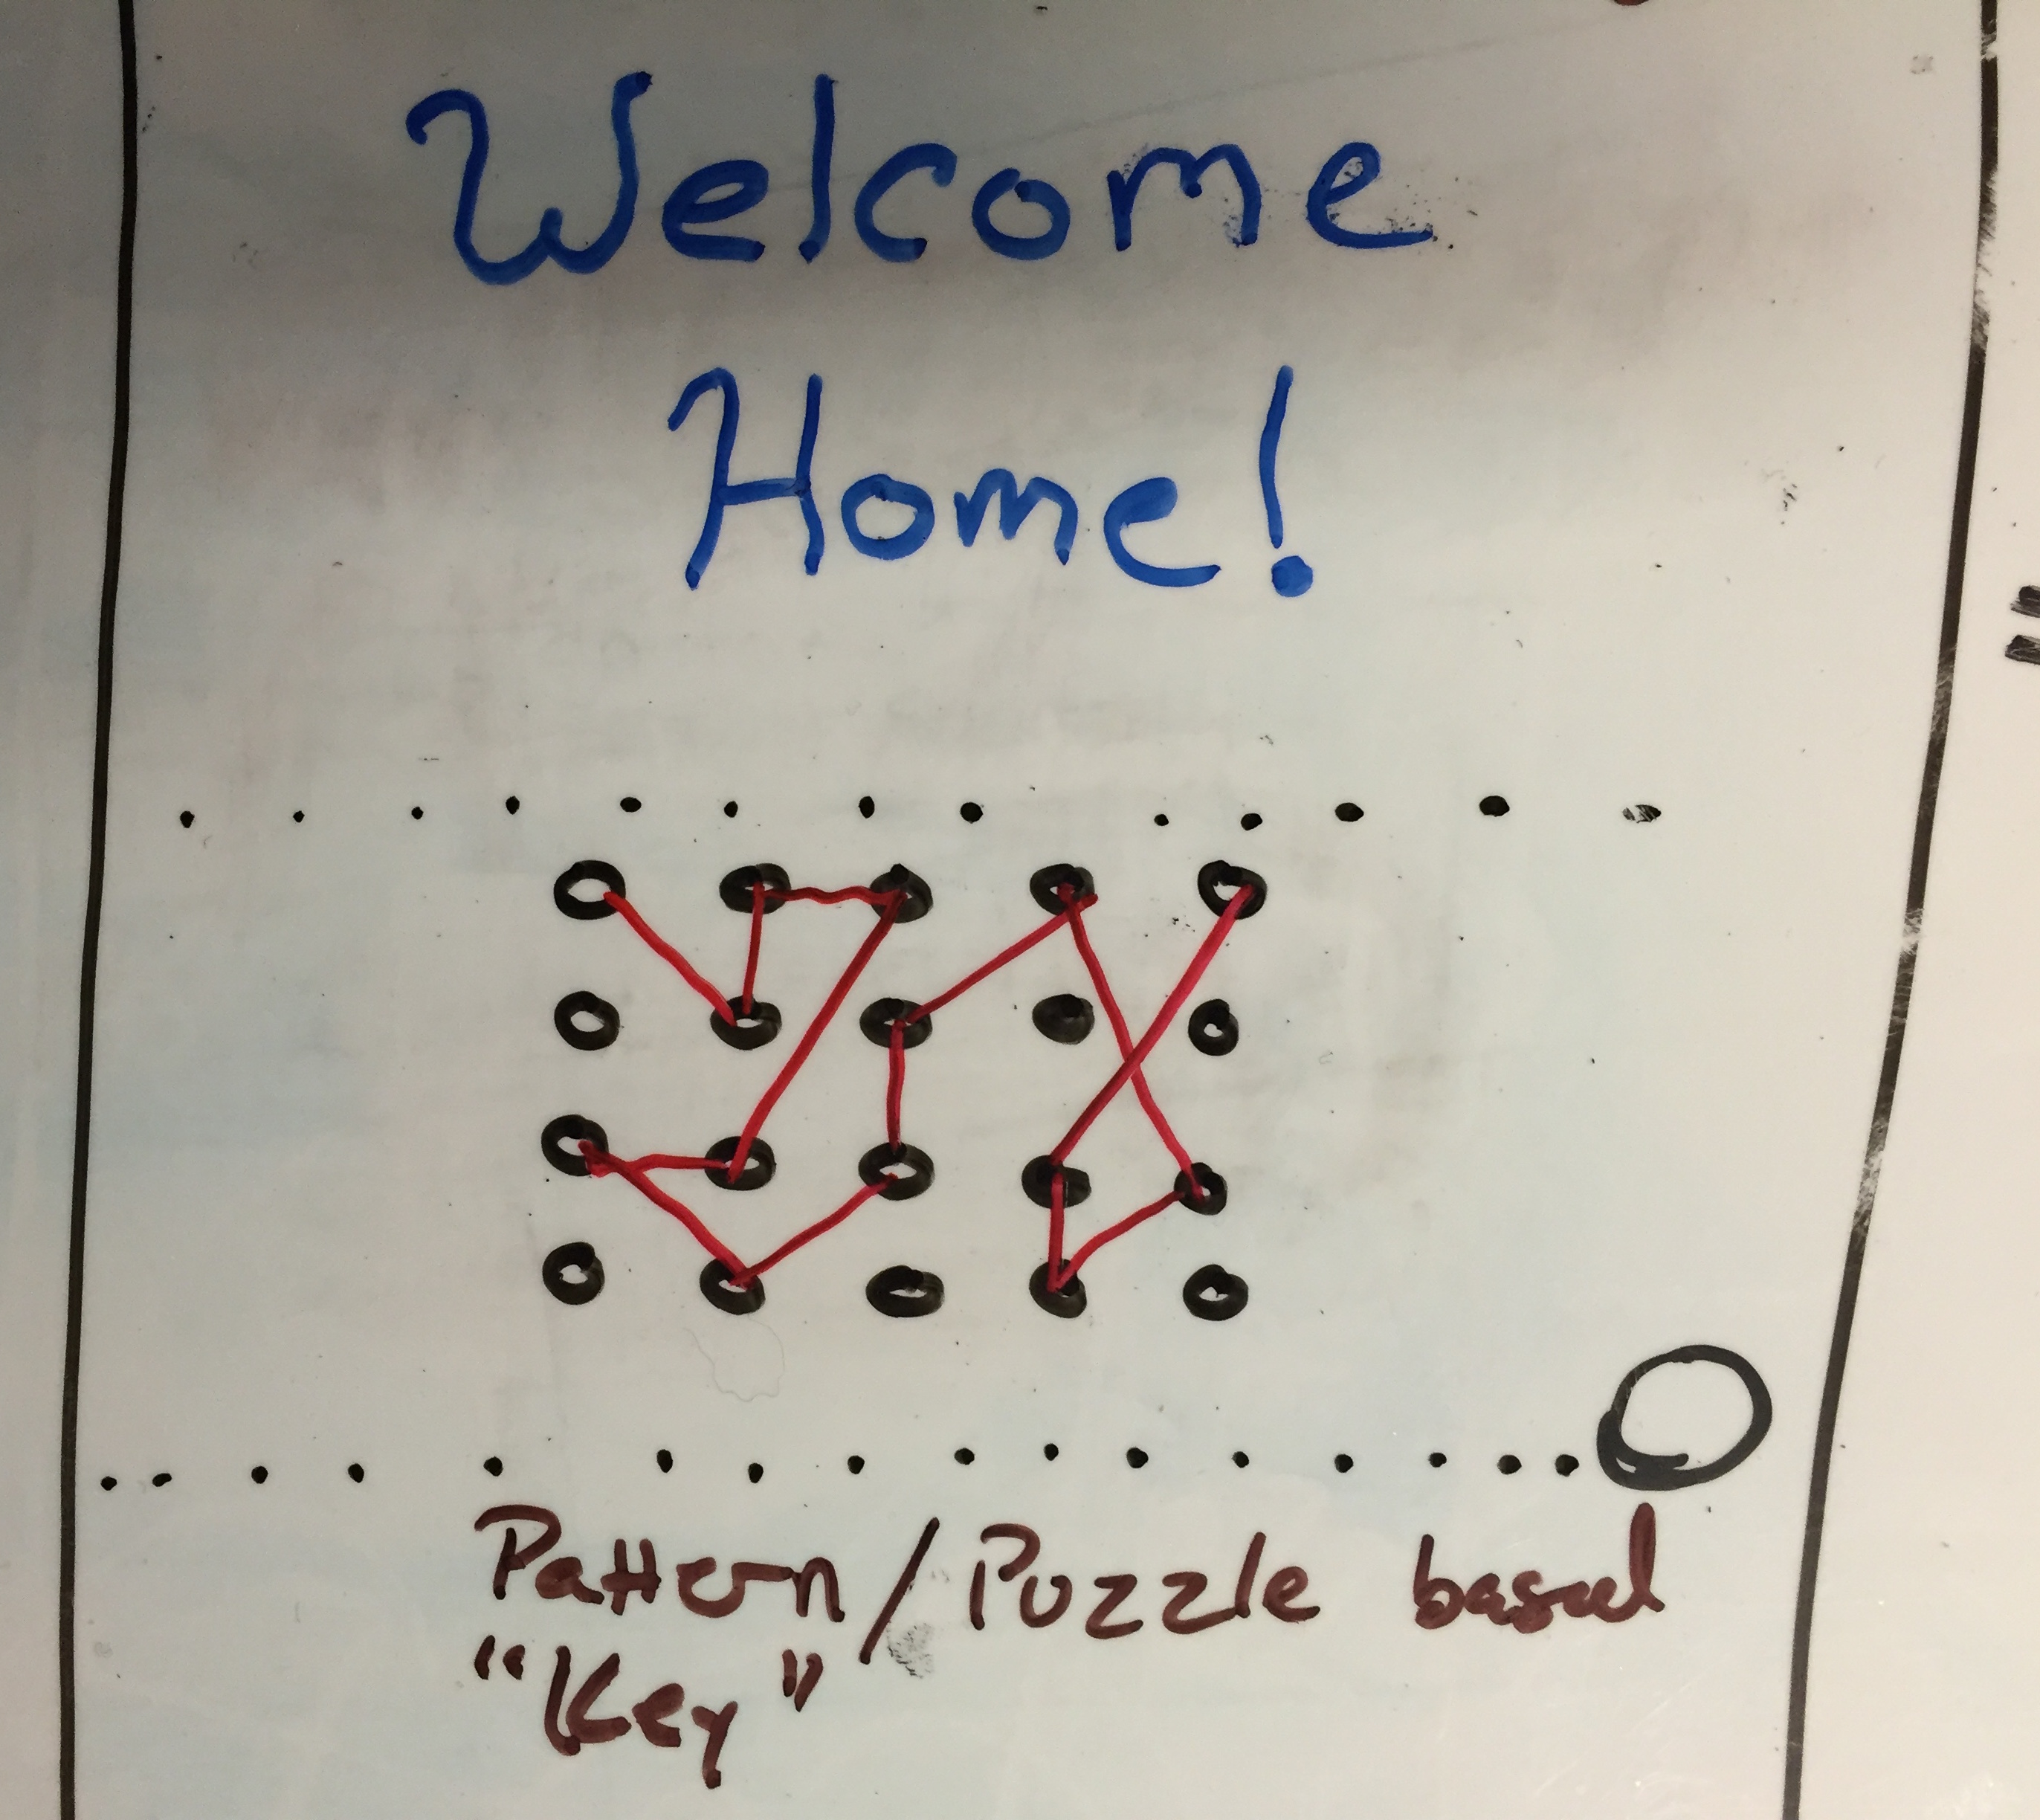 Welcome
Home!
Pattern/Puzzle based
"Key"